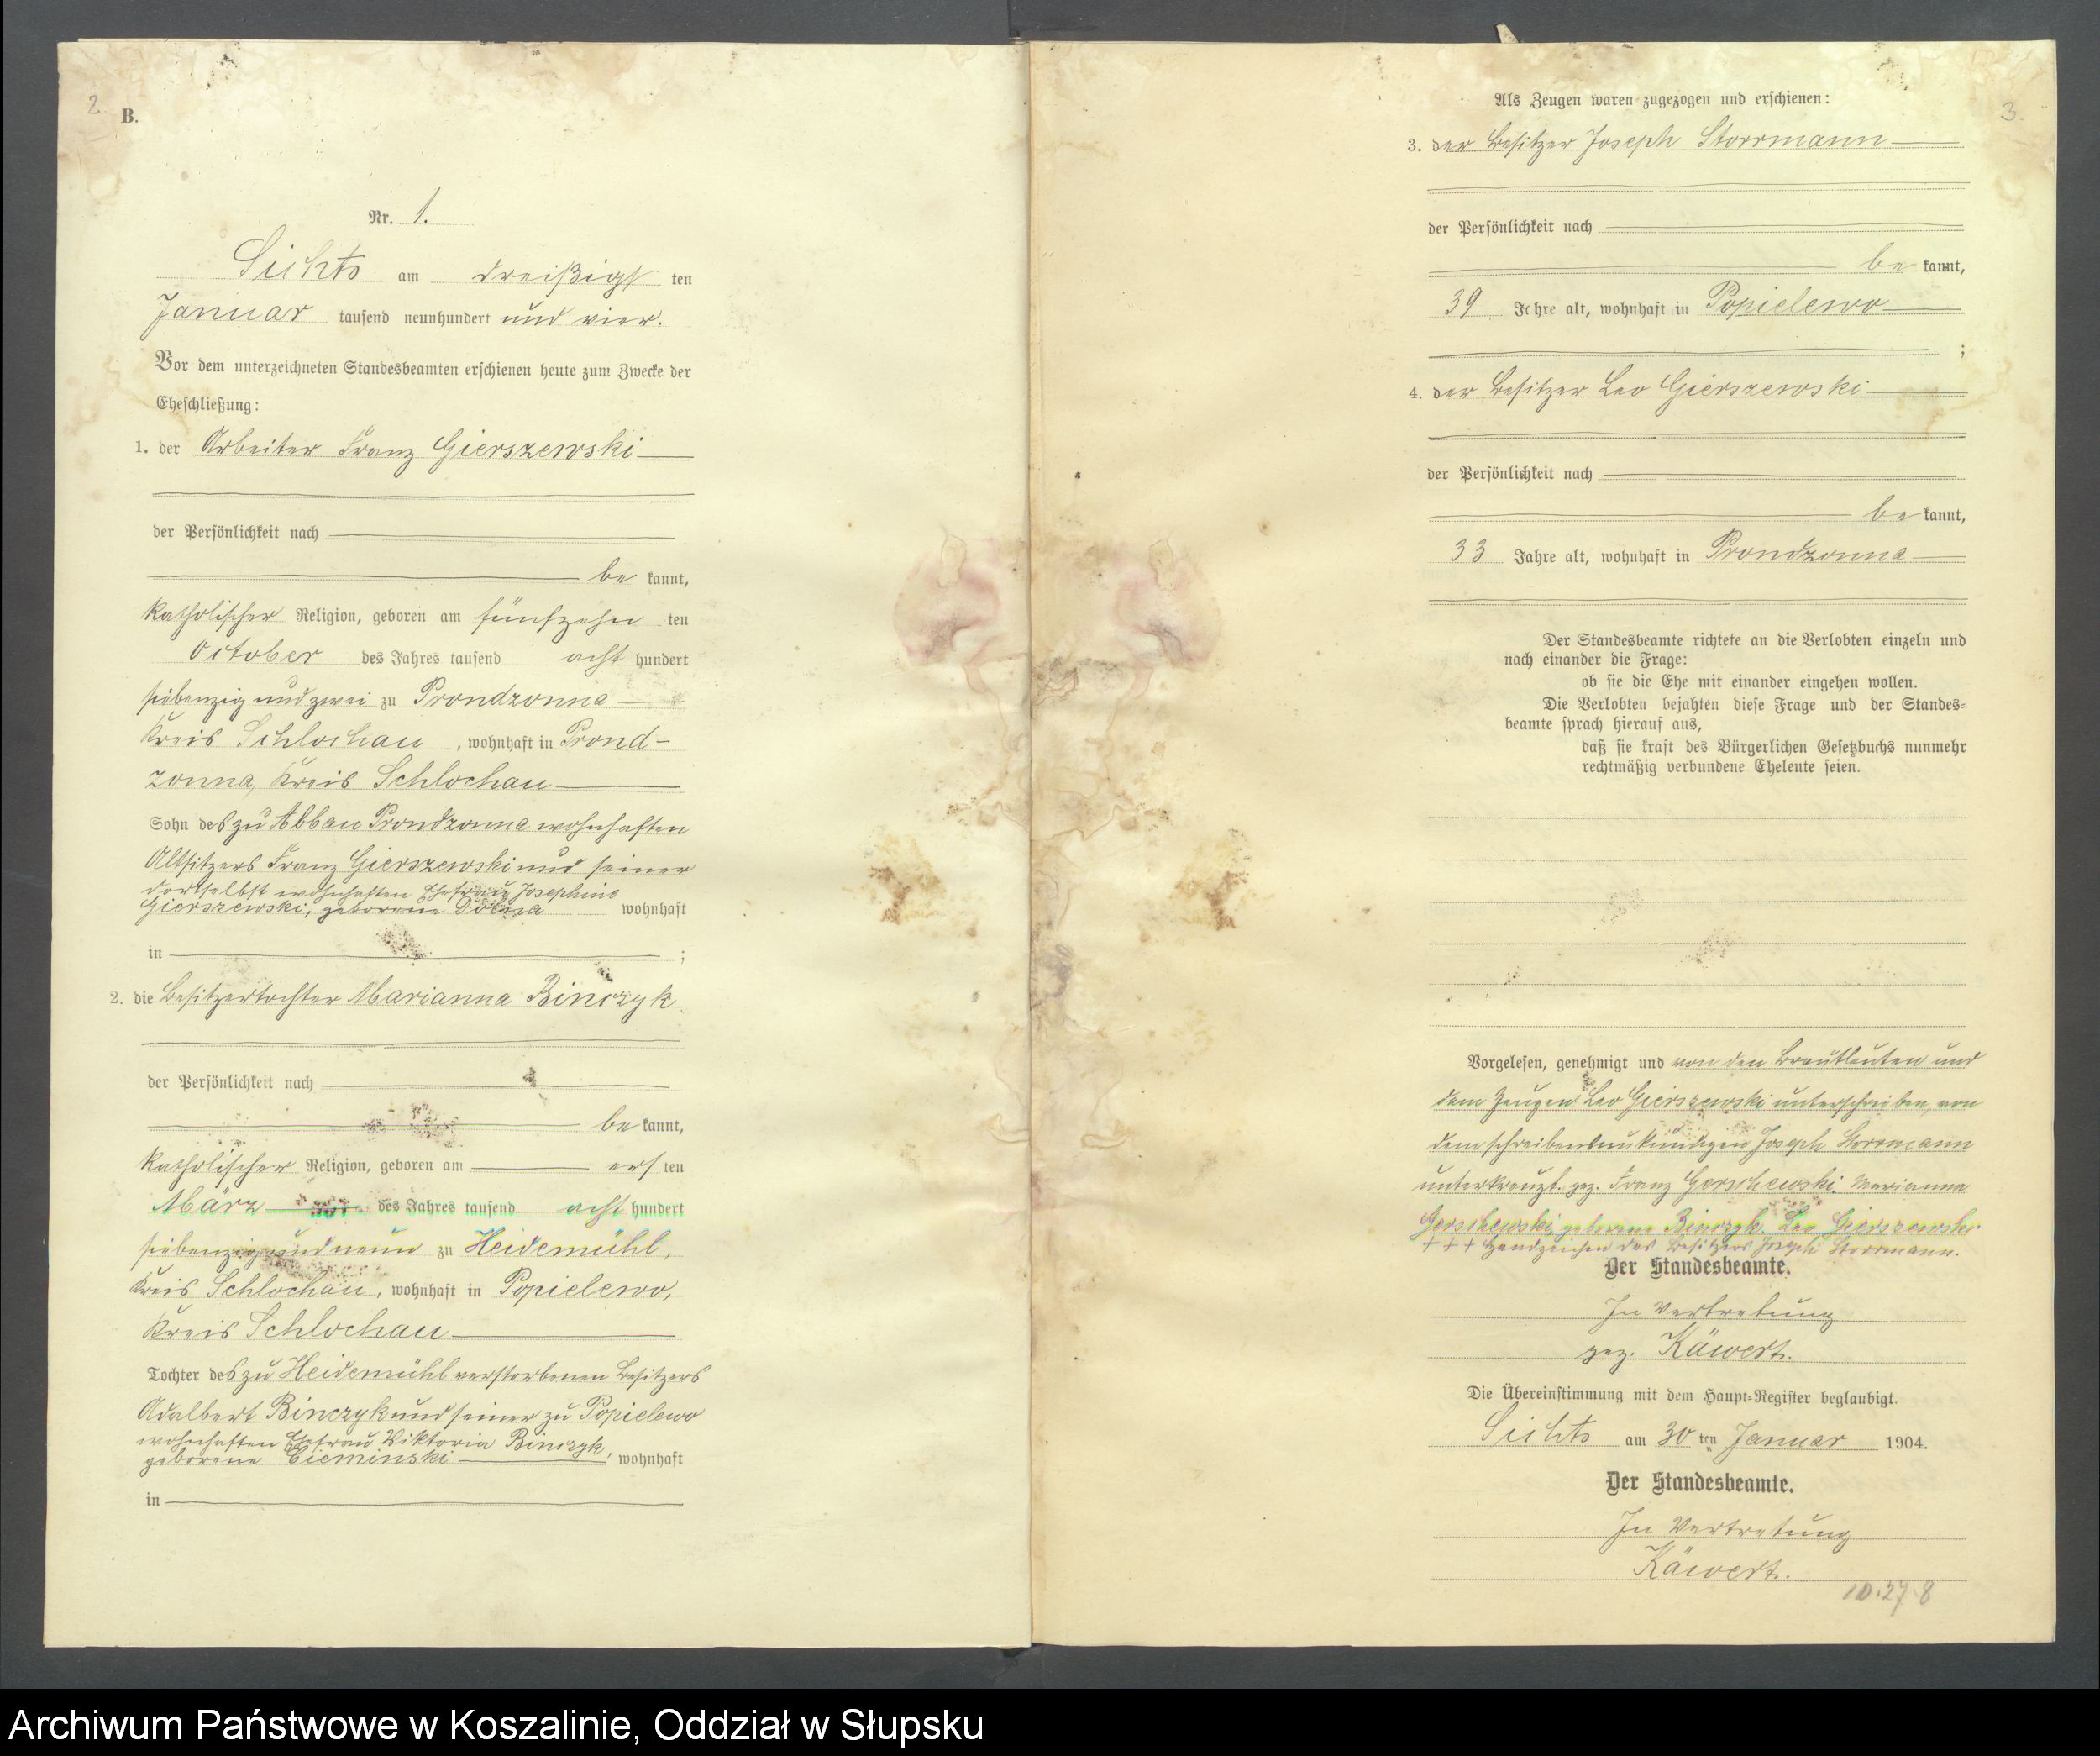 2
B.
Nr. 1.
Sichts am dreißigsten
Januar tausend neunhundert und vier.
Vor dem unterzeichneten Standesbeamten erschienen heute zum Zwecke der
Eheschließung:
1. der Arbeiter Franz Gierszewski
der Persönlichkeit nach
be kannt,
katholischer Religion, geboren am fünfzehn ten
October des Jahres tausend acht hundert
siebenzig und zwei zu Prondzonna
Kreis Schlochau, wohnhaft in Prond-
zonna, Kreis Schlochau
Sohn des zu Abbau Prondzonna wohnhaften
Altsitzers Franz Gierszewski und seiner
dortselbst wohnhaften Ehefrau Josephine
Gierszewski, geborene wohnhaft
in ;
2. die Besitzertochter Marianna Binczyk
der Persönlichkeit nach
be kannt,
katholischer Religion, geboren am ers ten
März des Jahres tausend acht hundert
siebenzig und neun zu Heidemühl,
Kreis Schlochau, wohnhaft in Popielewo,
Kreis Schlochau
Tochter des zu Heidemühl verstorbenen Besitzers
Adalbert Binczyk und seiner zu Popielewo
wohnhaften Ehefrau Viktoria Binczyk,
geborene Cieminski wohnhaft
in
3
Als Zeugen waren zugezogen und erschienen:
3. der Besitzer Joseph Storrmann
der Persönlichkeit nach
be kannt,
39 Jahre alt, wohnhaft in Popielewo
;
4. der Besitzer Leo Gierszewski
der Persönlichkeit nach
be kannt,
33 Jahre alt, wohnhaft in Prondzonna
Der Standesbeamte richtete an die Verlobten einzeln und
nach einander die Frage:
ob sie die Ehe mit einander eingehen wollen.
Die Verlobten bejahten diese Frage und der Standes-
beamte sprach hierauf aus,
daß sie kraft des Bürgerlichen Gesetzbuchs nunmehr
rechtmäßig verbundene Eheleute seien.
Vorgelesen, genehmigt und von den Brautleuten und
dem Zeugen Leo Gierszewski unterschrieben, von
dem schreibensunkundigen Joseph Storrmann
unterkreuzt. gez. Franz Gerschewski. Marianna
Gerschewski, geborene Binczyk. Leo Gierszewski
+++ Handzeichen des Besitzers Joseph Storrmann.
Der Standesbeamte.
In Vertretung
gez. Käwert.
Die Übereinstimmung mit dem Haupt-Register beglaubigt.
Sichts am 30 ten Januar 1904.
Der Standesbeamte.
In Vertretung
Käwert.
10.27.8
Archiwum Państwowe w Koszalinie, Oddział w Słupsku